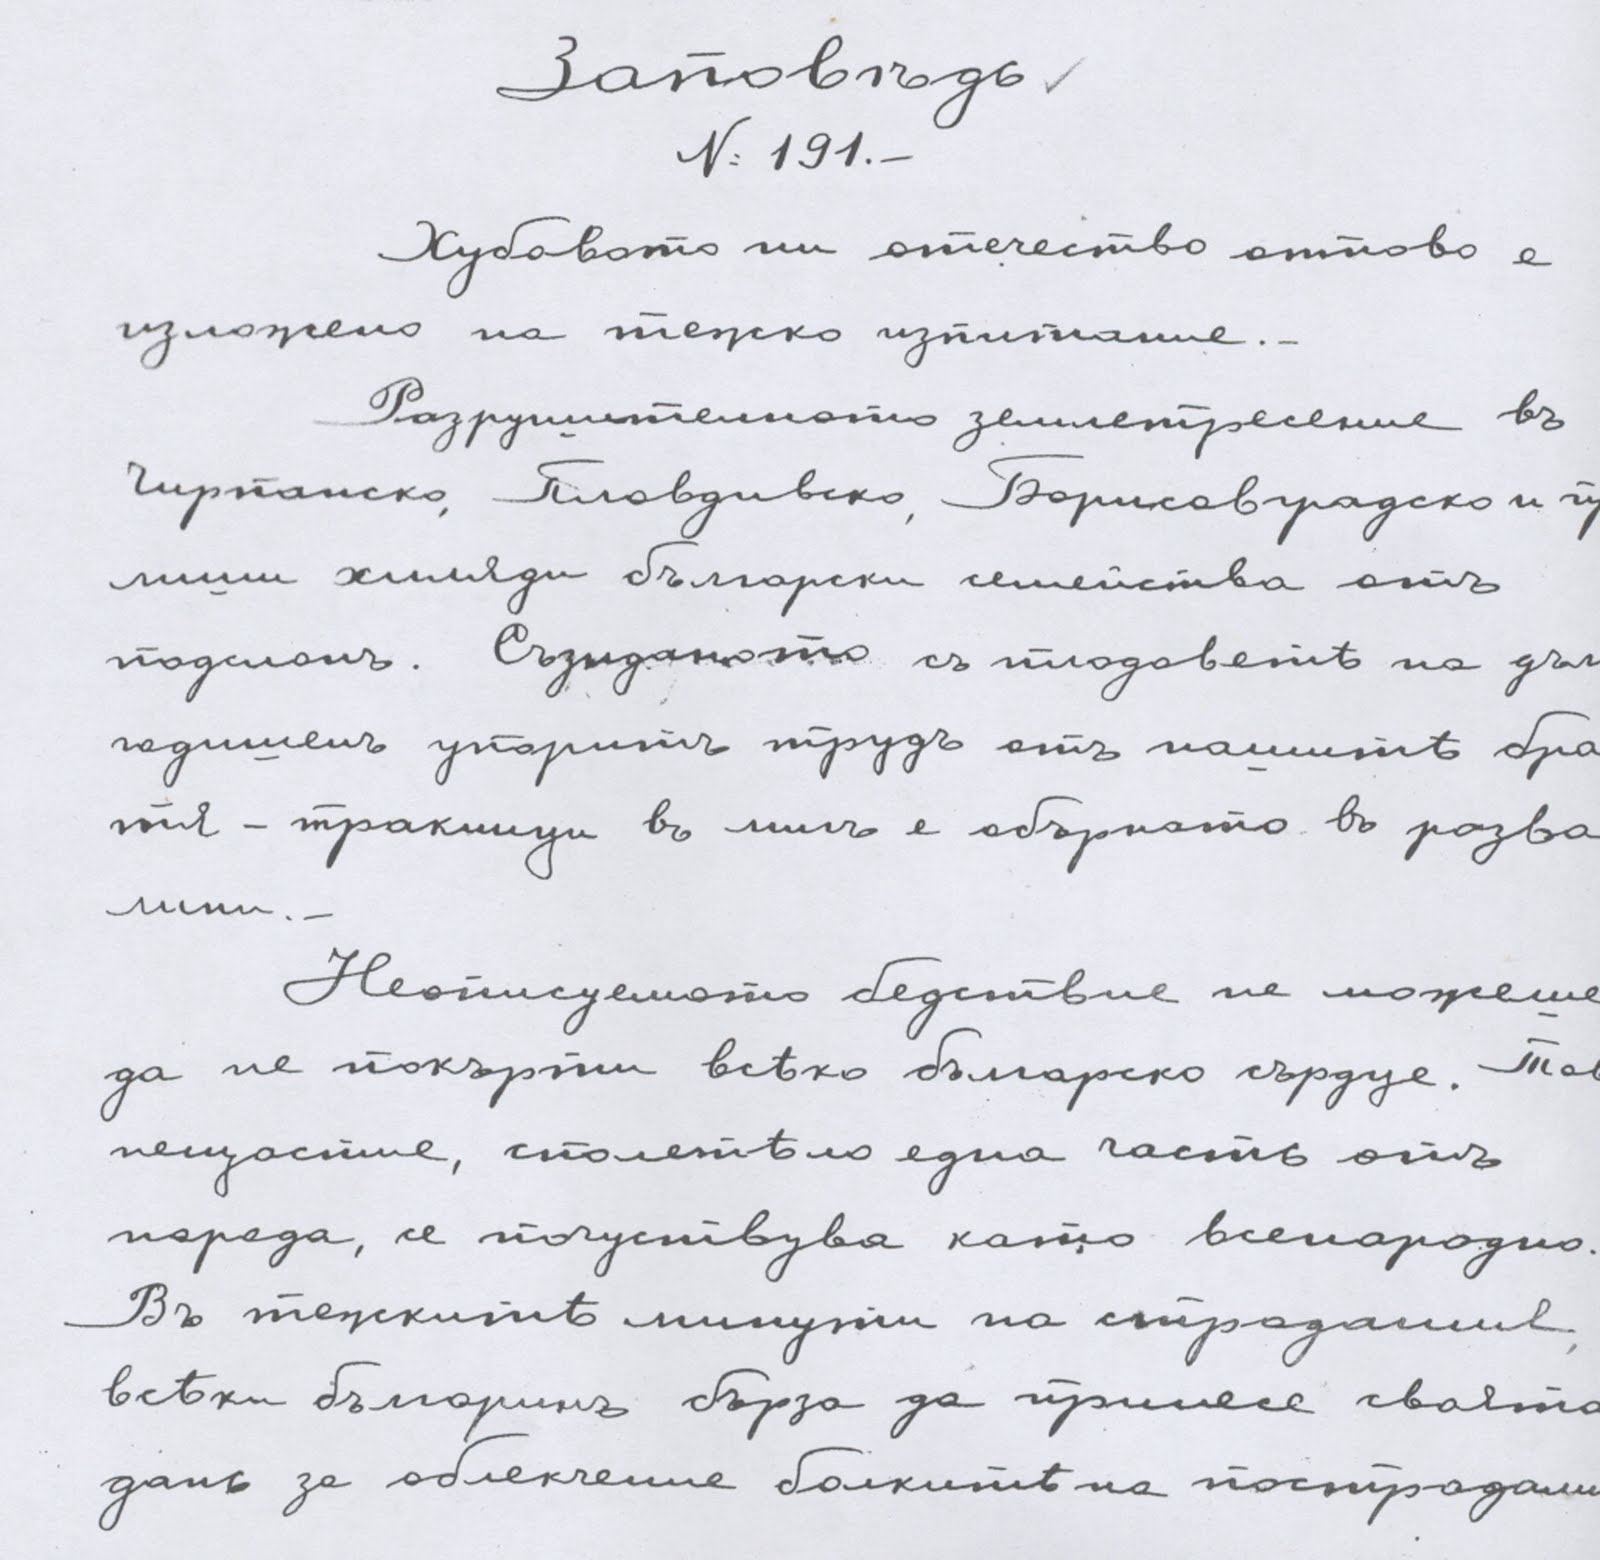 Заповѣдь
№: 191.–
Хубавото ни отечество отново е
изложено на тежко изпитание.–
Разрушителното землетресение въ
Чирпанско, Пловдивско, Борисовградско и пр
лиши хиляди български семейства отъ
подслонъ. Съзиданото съ плодоветѣ на дъл
годишенъ упоритъ трудъ отъ нашитѣ бра
тя – тракийци въ мигъ е обърнато въ разва
лини.–
Неописуемото бедствие не можеше
да не покърти всѣко българско сърдце. Тов
нещастие, сполетѣло една часть отъ
народа, се почуствува като всенародно.
Въ тежкитѣ минути на страдания,
всѣки българинъ бърза да принесе своята
дань за облекчение болкитѣ на пострадали